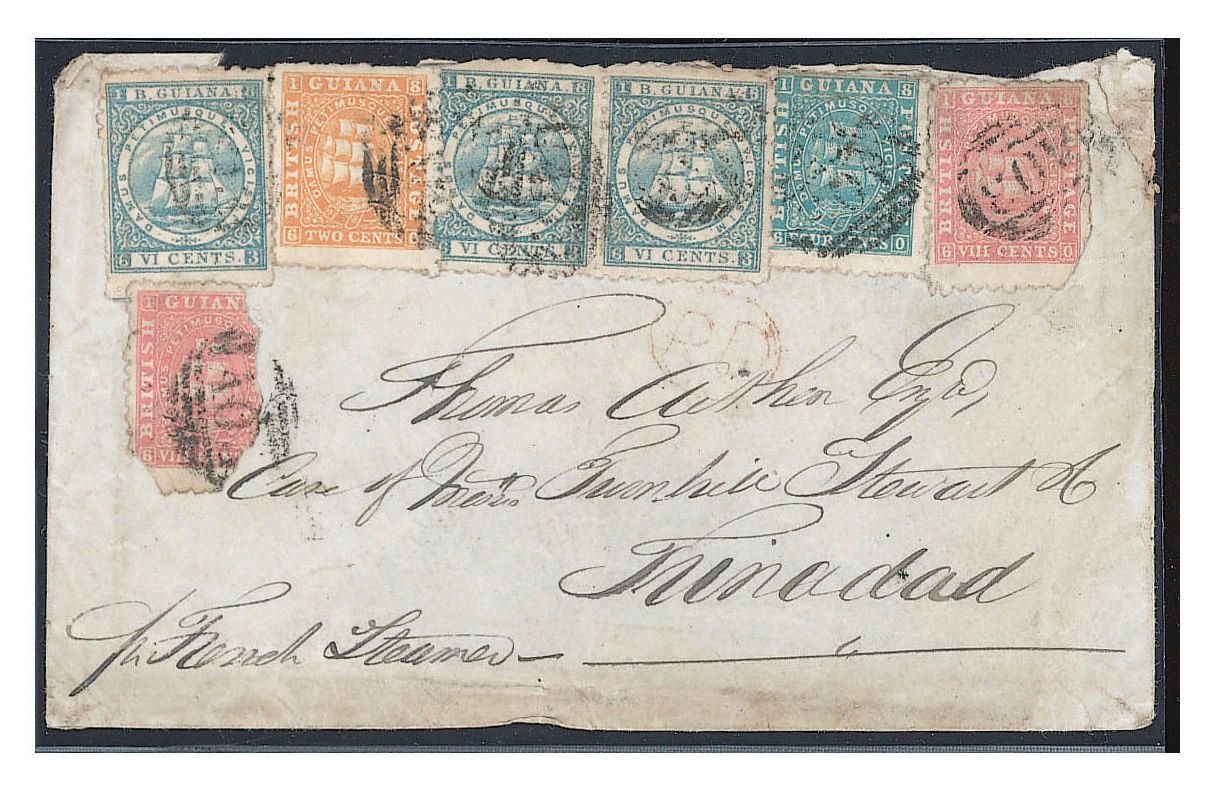 1 B. GUIANA. 8
DAMUS PETIMUSQUE VICISSIM
6 VI CENTS. 3
1 GUIANA 8
BRITISH
POSTAGE
DAMUS PETIMUSQUE
6 TWO CENTS 0
1 B. GUIANA. 8
VI CENTS. 3
1 B. GUIANA 8
DAMUS PETIMUSQUE VICISSIM
6 VI CENTS. 3
1 GUIANA 8
BRITISH
DAMUS PETIMUSQUE VICISSIM
6 FOUR CENTS 0
1 GUIANA 8
BRITISH
POSTAGE
6 VIII CENTS 0
A03
1 GUIANA
BRITISH
DAMUS PETIMUSQUE
6 VIII CENT
A03
PD
Thomas Aitken Esqr,
Care of Messrs Turnbull Stewart & Co
Trinadad
per French Steamer